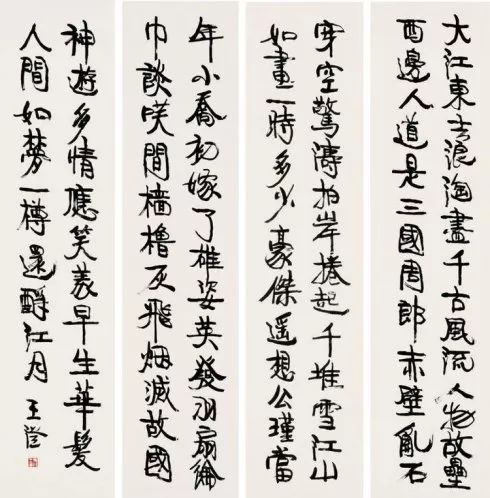 大江東去浪淘盡千古風流人物故壘
西邊人道是三國周郎赤壁亂石
穿空驚濤拍岸捲起千堆雪江山
如畫一時多少豪傑遥想公瑾當
年小喬初嫁了雄姿英發羽扇綸
巾談咲間檣櫓灰飛烟滅故國
神遊多情應笑我早生華髮
人間如夢一樽還酹江月 王澄